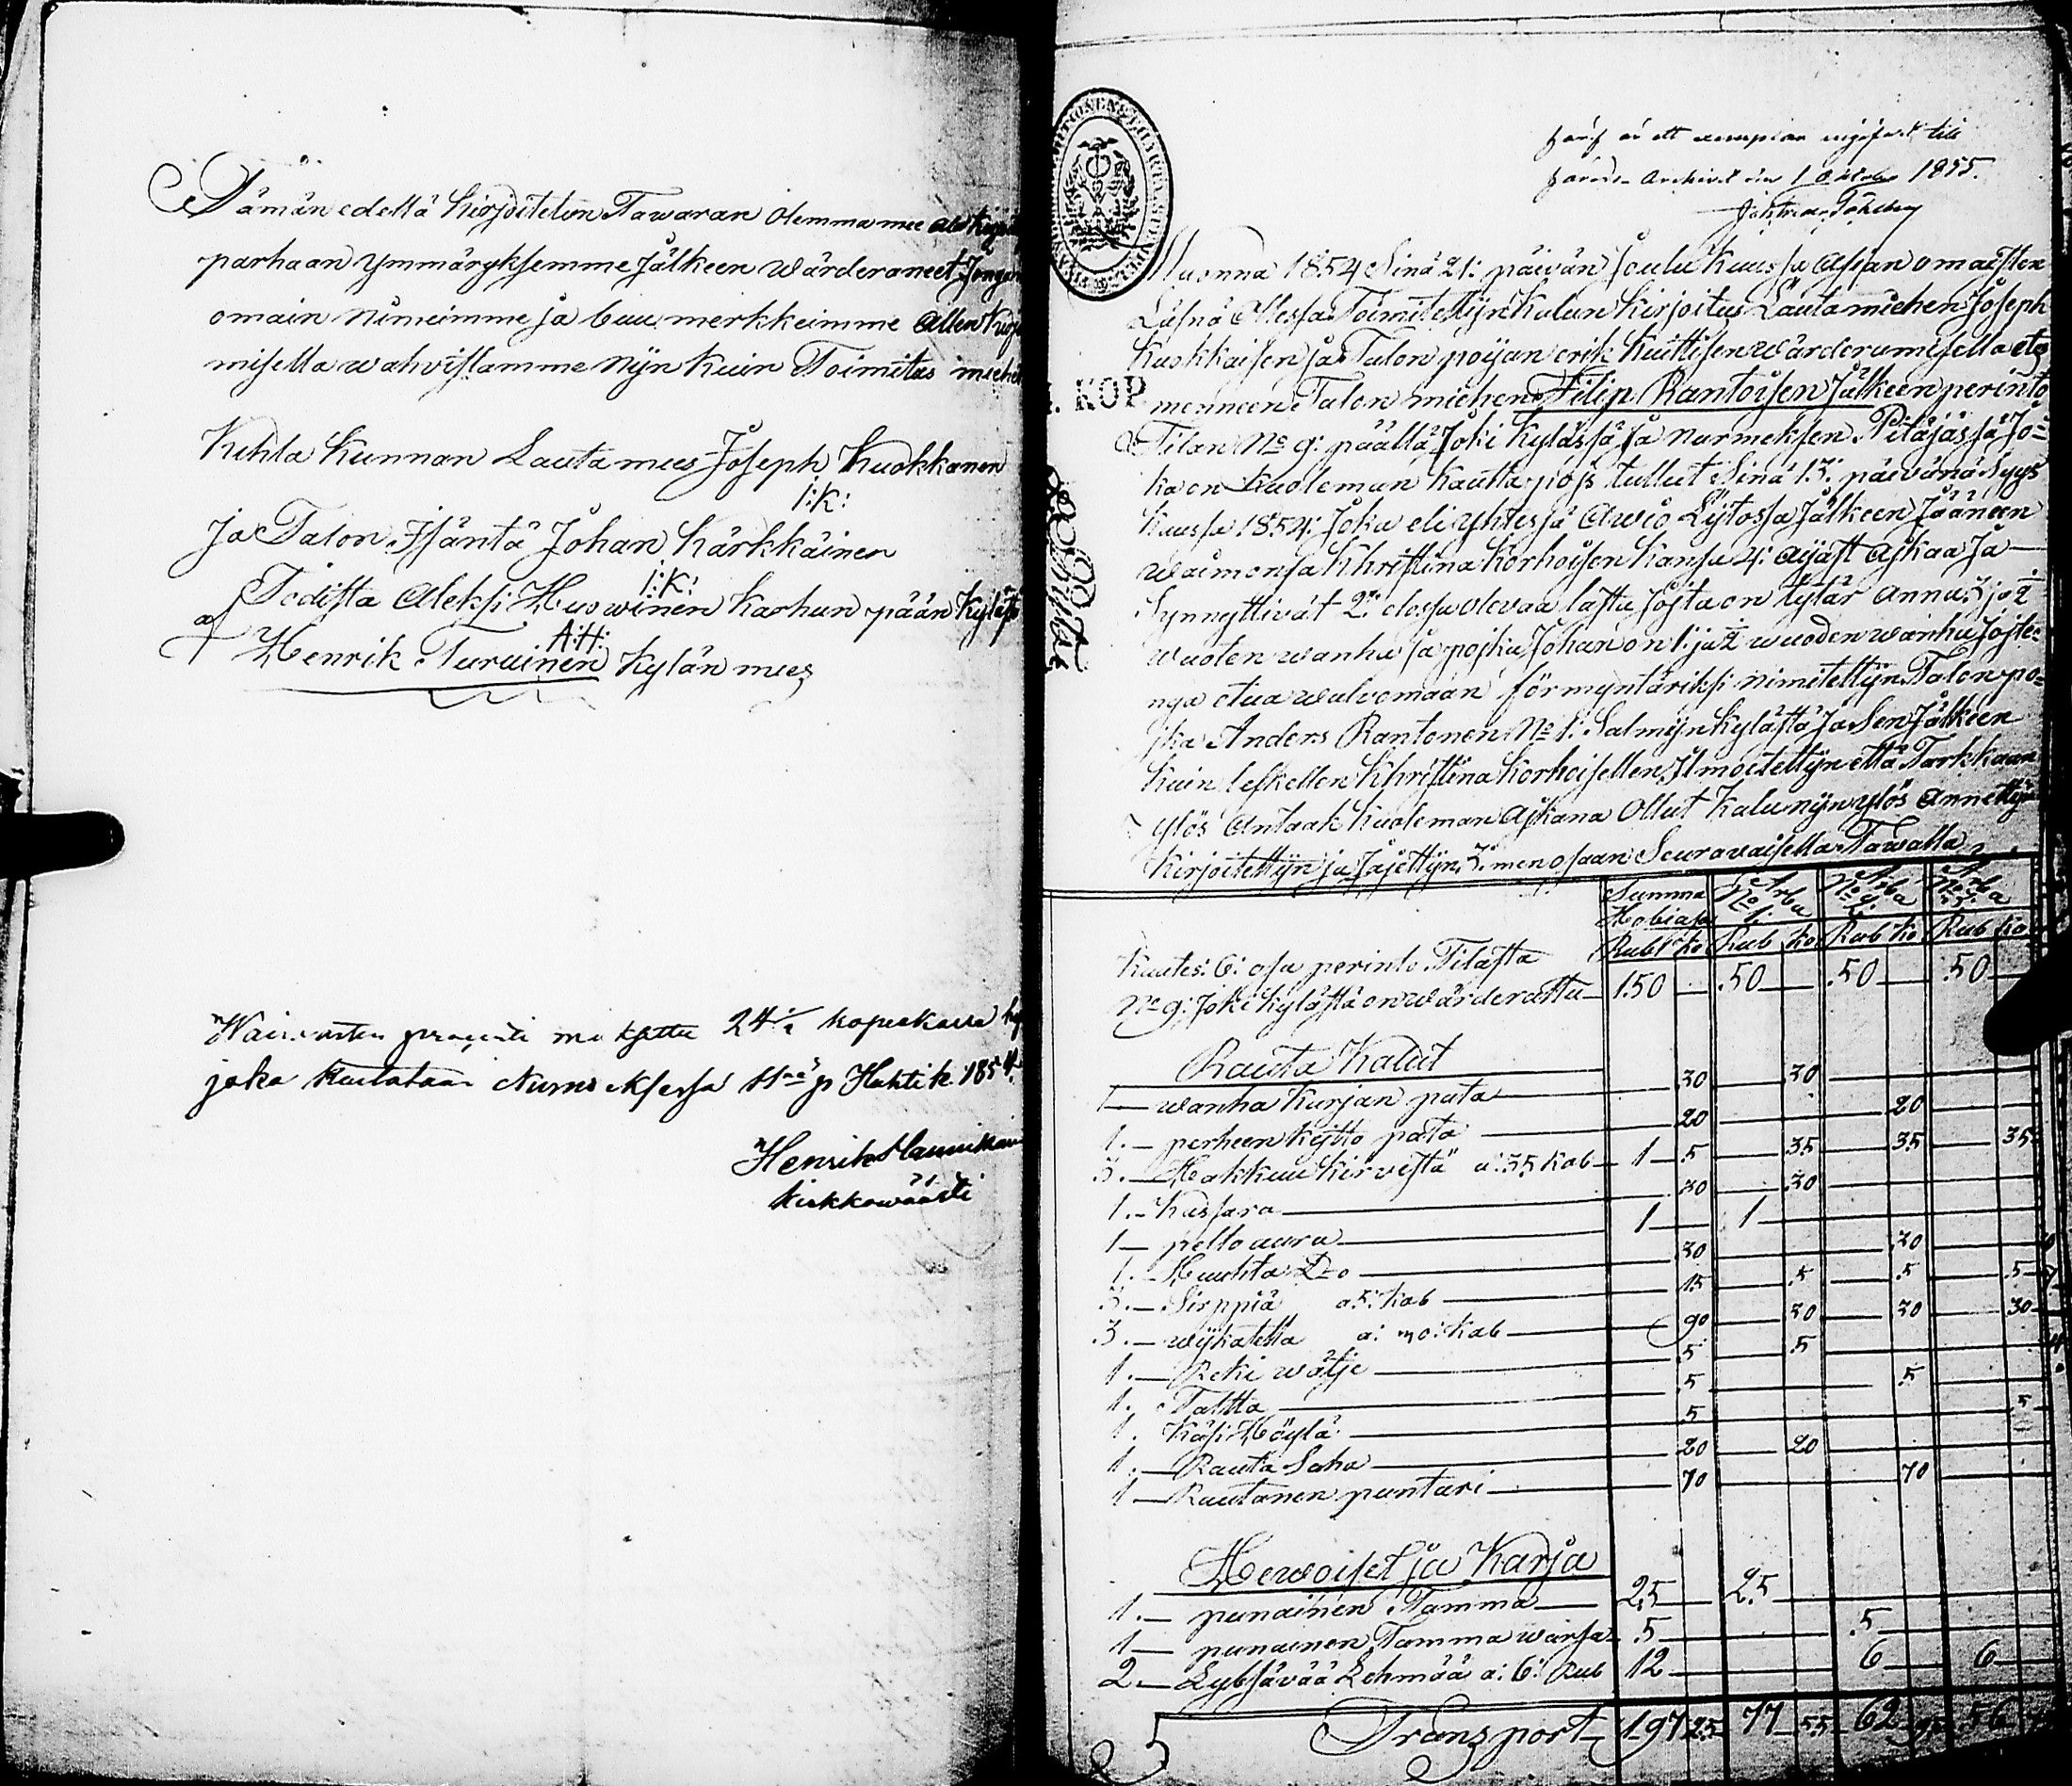 Tämän edellä Kirjoitetun Tawaran olemma mee
parhaan ymmäryksemme Jälkeen wärderaneet
omain nimeimme ja buu merkkeimme allen
misella wahvistamme nijn kuin Toimitus
Kihla Kunnan Lauta mies Joseph Kuokkanen
I:K:
Ja Talon Isäntä Johan Kärkkäinen
I:K:
Todista Aleksi Huowinen Karhun pään
A:H:
Henrik Turuinen Kylän mies
Waiwasten procenti maksettu 24 1/2 kopeekassa
joka kuitataan Nurmeksessa 11nä p Huhtik. 1854.
Henrik
kirkkowäärti
häraf är ett exemplar ingifvet till
Härads Archivet den 1 October 1855.
Muonna 1854 Sinä 21: päivän Joulu Kuussa Asian omaisten
Läsnä Ollessa Toimitettijn Kalun Kirjoitus Lauta miehen Joseph
Kuokkaisen ja Talon pojan Erik Kuittisen wärderamisella
. KOP
menneen Talon miehen Filip Rantoisen Jälkeen perinto
Tilan No 9: päällä Joki Kylässä ja Nurmeksen Pitäjässä Jo=
ka on Kuoleman Kautta pojs tullut Sinä 13: päivänä Syys
Kuussa 1854: Joka eli yhtessä Awio Lijtossa Jälkeen Jääneen
Waimonsa Khristina Korhoisen Kansa 4: Ajast Ajkaa Ja
Synnyttivät 2: elossa olevaa lasta Joista on tytär Anna 3 ja 1/2
wuoten wanha ja pojka Johan on 1: ja 1/2 wuoden wanha Joite=
nga etua walvomaan förmyntäriksi nimitettijn Talon po=
jka Anders Rantonen No 1: Salmijn Kylästä Ja Sen Jälkeen
Kuin leskellen Khristina Korhoisellen Ilmoitettijn että Tarkkaan
ylös Antaak Kuoleman Ajkana Ollut Kalu nijn ylös Annettijn
Kirjoitettijn ja Jajettijn 3: men osaan Seuravaisella Tawalla
Summa Hobiassa No Arba 1: No Arba 2: No Arba 3:
Rubl ko Rub ko Rub ko Rub ko
Kuutes: 6: osa perinto Tilasta
No 9: Joki Kylästä on wärderattu 150 50 50 50
Rauta Kalut
1 wanha Karjan pata 30 30
1. perheen Kejtto pata 20 20
3. Hakkuu Kirvestä a: 35 Kob 1 5 35 35 35
1. Kassara 30 30
1 pello aura 1 1
1. Huuhta Do 30 30
3. Sirppiä a 5: Kob 15 5 5 5
3. wijkatetta a: 30: Kob 90 30 30 30
1. Reki wätje 5 5
1. Taltta 5 5
1. Käsi Höylä 5 5
1. Rauta Saha 20 20
1 Rautanen puntari 70 70
Hewoiset ja Karja
1. punainen Tamma 25 25
1 punainen Tamma warsa 5 5
2 Lybsävää Lehmää a: 6: Rub 12 6 6
Transport 197 25 77 55 62 56